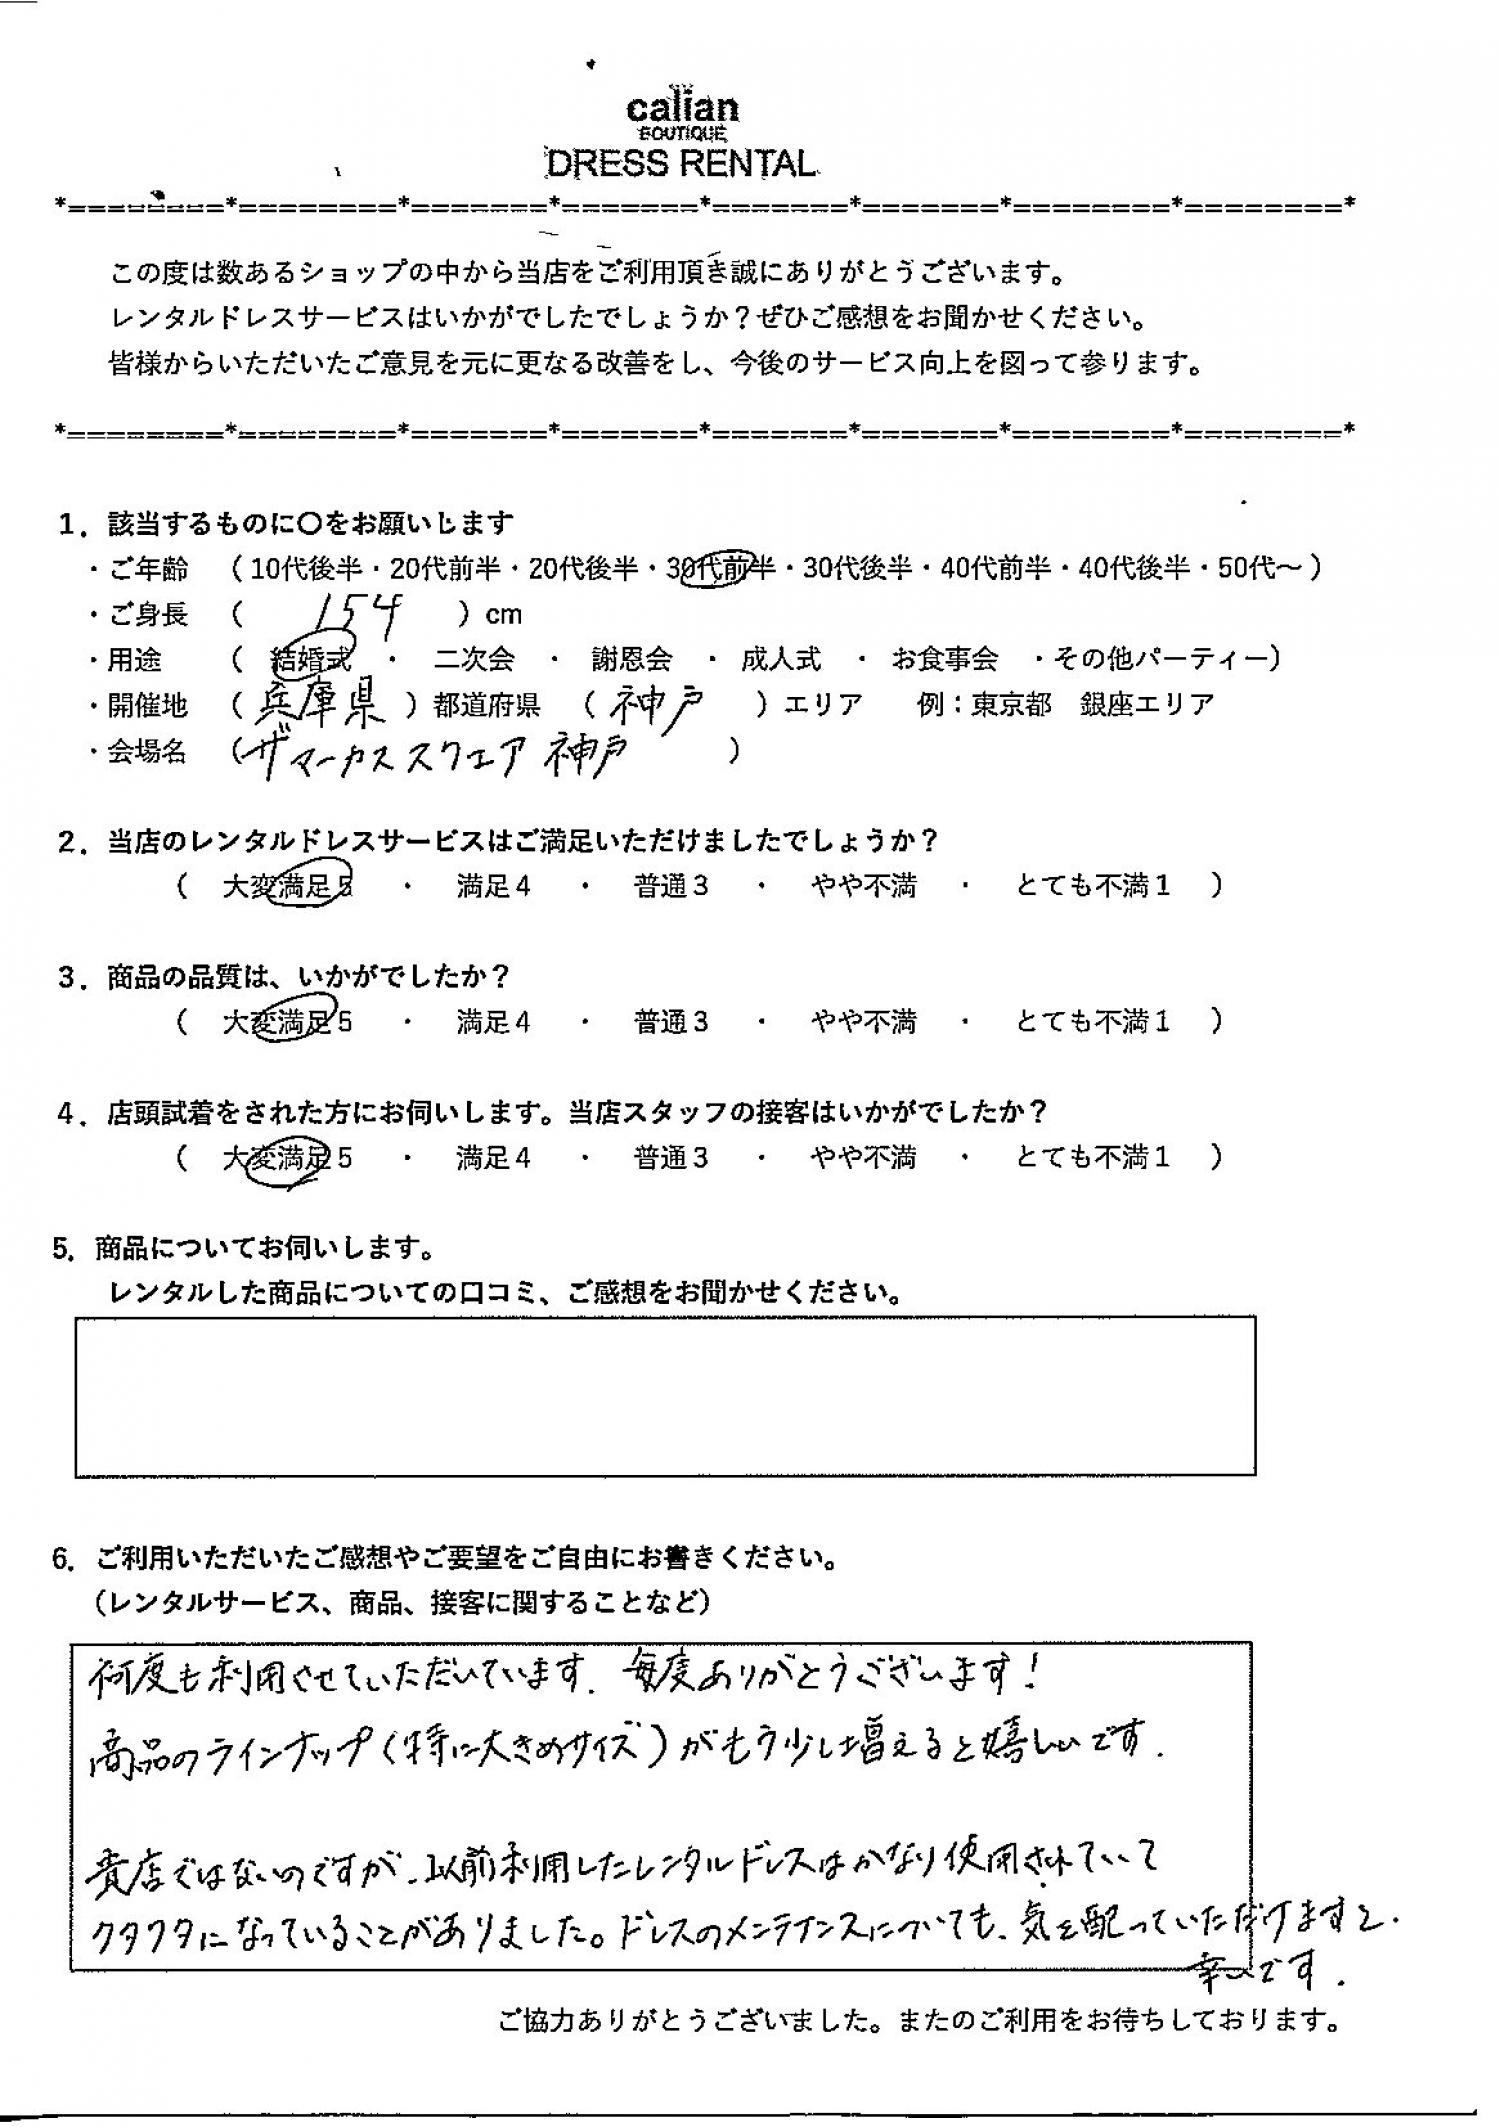 calian
BOUTIQUE
DRESS RENTAL
*========*========*=======*=======*=======*=======*========*========*
この度は数あるショップの中から当店をご利用頂き誠にありがとうございます。
レンタルドレスサービスはいかがでしたでしょうか？ぜひご感想をお聞かせください。
皆様からいただいたご意見を元に更なる改善をし、今後のサービス向上を図って参ります。
*========*========*=======*=======*=======*=======*========*========*
1．該当するものに〇をお願いします
・ご年齢 （10代後半・20代前半・20代後半・30代前半・30代後半・40代前半・40代後半・50代～）
・ご身長 （ 154 ）cm
・用途 （ 結婚式 ・ 二次会 ・ 謝恩会 ・ 成人式 ・ お食事会 ・その他パーティー）
・開催地 （ 兵庫県 ）都道府県 （ 神戸 ）エリア 例：東京都 銀座エリア
・会場名 （ザマーカススクェア 神戸 ）
2．当店のレンタルドレスサービスはご満足いただけましたでしょうか？
（ 大変満足5 ・ 満足4 ・ 普通3 ・ やや不満 ・ とても不満1 ）
3．商品の品質は、いかがでしたか？
（ 大変満足5 ・ 満足4 ・ 普通3 ・ やや不満 ・ とても不満1 ）
4．店頭試着をされた方にお伺いします。当店スタッフの接客はいかがでしたか？
（ 大変満足5 ・ 満足4 ・ 普通3 ・ やや不満 ・ とても不満1 ）
5．商品についてお伺いします。
レンタルした商品についての口コミ、ご感想をお聞かせください。
6．ご利用いただいたご感想やご要望をご自由にお書きください。
（レンタルサービス、商品、接客に関することなど）
何度も利用させていただいています. 毎度ありがとうございます!
商品のラインナップ(特に大きめサイズ)がもう少し増えると嬉しいです.
貴店ではないのですが、以前利用したレンタルドレスはかなり使用されていて
クタクタになっていることがありました。ドレスのメンテナンスについても、気を配っていただけますと、
幸いです.
ご協力ありがとうございました。またのご利用をお待ちしております。